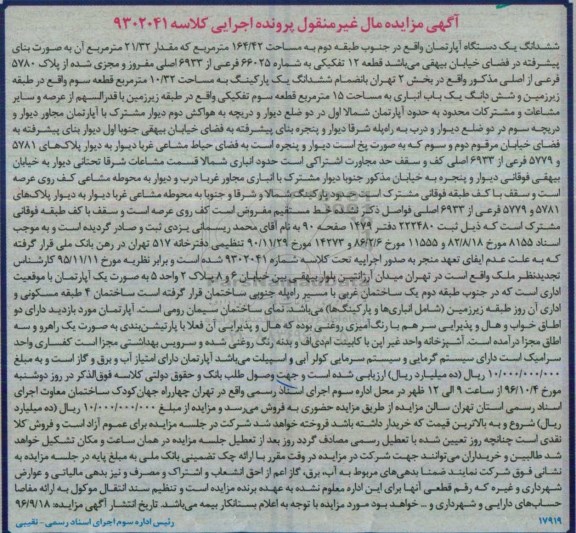 آگهی مزایده مال غیرمنقول پرونده اجرایی کلاسه ۹۳۰۲۰۴۱
ششدانگ یک دستگاه آپارتمان واقع در جنوب طبقه دوم به مساحت ۱۶۴/۴۲ مترمربع که مقدار ۲۱/۳۲ مترمربع آن به صورت بنای
پیشرفته در فضای خیابان بیهقی می‌باشد قطعه ۱۲ تفکیکی به شماره ۶۶۰۲۵ فرعی از ۶۹۳۳ اصلی مفروز و مجزی شده از پلاک ۵۷۸۰
فرعی از اصلی مذکور واقع در بخش ۲ تهران بانضمام ششدانگ یک پارکینگ به مساحت ۱۰/۳۲ مترمربع قطعه سوم واقع در طبقه
زیرزمین و شش دانگ یک باب انباری به مساحت ۱۵ مترمربع قطعه سوم تفکیکی واقع در طبقه زیرزمین با قدرالسهم از عرصه و سایر
مشاعات و مشترکات محدود به حدود آپارتمان شمالا اول در دو ضلع دیوار و دریچه به هواکش دوم دیوار مشترک با آپارتمان مجاور دیوار و
دریچه سوم در دو ضلع دیوار و درب به راه‌پله شرقا دیوار و پنجره بنای پیشرفته به فضای خیابان بیهقی جنوبا اول دیوار بنای پیشرفته به
فضای خیابان مرقوم دوم و سوم که به صورت پخ است دیوار و پنجره است به فضای حیاط مشاعی غربا دیوار به دیوار پلاک‌های ۵۷۸۱
و ۵۷۷۹ فرعی از ۶۹۳۳ اصلی کف و سقف حد مجاورت اشتراکی است حدود انباری شمالا قسمت مشاعات شرقا تحتانی دیوار به خیابان
بیهقی فوقانی دیوار و پنجره به خیابان مذکور جنوبا دیوار مشترک با انباری مجاور غربا درب و دیوار به محوطه مشاعی کف روی عرصه
است و سقف با کف طبقه فوقانی مشترک است حدود پارکینگ شمالا و شرقا و جنوبا به محوطه مشاعی غربا دیوار به دیوار پلاک‌های
۵۷۸۱ و ۵۷۷۹ فرعی از ۶۹۳۳ اصلی فواصل ذکر نشده خط مستقیم مفروض است کف روی عرصه است و سقف با کف طبقه فوقانی
مشترک است که ذیل ثبت ۲۲۲۴۸۰ دفتر ۱۴۷۹ صفحه ۹۰ به نام آقای محمد ریسمانی یزدی ثبت و صادر گردیده است و به موجب
اسناد ۸۱۵۵ مورخ ۸۲/۸/۱۸ و ۱۱۵۵۵ مورخ ۸۶/۲/۶ و ۱۴۲۷۳ مورخ ۹۰/۱۱/۲۹ تنظیمی دفترخانه ۵۱۷ تهران در رهن بانک ملی قرار گرفته
که به علت عدم ایفای تعهد منجر به صدور اجراییه تحت کلاسه شماره ۹۳۰۲۰۴۱ شده است و برابر نظریه مورخ ۹۵/۱۱/۱۱ کارشناس
تجدیدنظر ملک واقع است در تهران میدان آرژانتین بلوار بیهقی بین خیابان ۶ و ۸ پلاک ۲ واحد ۵ به صورت یک آپارتمان با موقعیت
اداری است که در جنوب طبقه دوم یک ساختمان غربی با مسیر راه‌پله جنوبی ساختمان قرار گرفته است ساختمان ۴ طبقه مسکونی و
اداری آن روز طبقه زیرزمین (شامل انباری‌ها و پارکینگ‌ها) می‌باشد. نمای ساختمان سیمان رومی است. آپارتمان مورد بازدید دارای دو
اطاق خواب و هال و پذیرایی سر هم با رنگ‌آمیزی روغنی بوده که هال و پذیرایی آن فعلا با پارتیشن‌بندی به صورت یک راهرو و سه
اطاق مجزا درآمده است. آشپزخانه واحد غیر اپن با کابینت ام‌دی‌اف و بدنه رنگ روغنی شده و سرویس بهداشتی مجزا است کفسازی واحد
سرامیک است دارای سیستم گرمایی و سیستم سرمایی کولر آبی و اسپیلت می‌باشد آپارتمان دارای امتیاز آب و برق و گاز است و به مبلغ
۱۰/۰۰۰/۰۰۰/۰۰۰ ریال (ده میلیارد ریال) ارزیابی شده است و جهت وصول طلب بانک و حقوق دولتی کلاسه فوق‌الذکر در روز دوشنبه
مورخ ۹۶/۱۰/۴ از ساعت ۹ الی ۱۲ ظهر در محل اداره سوم اجرای اسناد رسمی واقع در تهران چهارراه جهان‌کودک ساختمان معاونت اجرای
اسناد رسمی استان تهران سالن مزایده از طریق مزایده حضوری به فروش می‌رسد و مزایده از مبلغ ۱۰/۰۰۰/۰۰۰/۰۰۰ ریال (ده میلیارد
ریال) شروع و به بالاترین قیمت که خریدار داشته باشد فروخته خواهد شد شرکت در جلسه مزایده برای عموم آزاد است و فروش کلا
نقدی است چنانچه روز تعیین شده با تعطیل رسمی مصادف گردد روز بعد از تعطیل جلسه مزایده در همان ساعت و مکان تشکیل خواهد
شد طالبین و خریداران می‌توانند جهت شرکت در مزایده در وقت مقرر با ارائه چک تضمینی بانک ملی به مبلغ پایه در جلسه مزایده به
نشانی فوق شرکت نمایند ضمنا بدهی‌های مربوط به آب، برق، گاز اعم از احق انشعاب و اشتراک و مصرف و نیز بدهی مالیاتی و عوارض
شهرداری و غیره که رقم قطعی آنها برای این اداره معلوم نشده به عهده برنده مزایده است و تنظیم سند انتقال موکول به ارائه مفاصا
حساب‌های دارایی و شهرداری و ... خواهد بود مورد مزایده با توجه به اعلام بستانکار بیمه می‌باشد. تاریخ انتشار آگهی مزایده: ۹۶/۹/۱۸
رئیس اداره سوم اجرای اسناد رسمی - نقیبی
۱۷۹۱۹